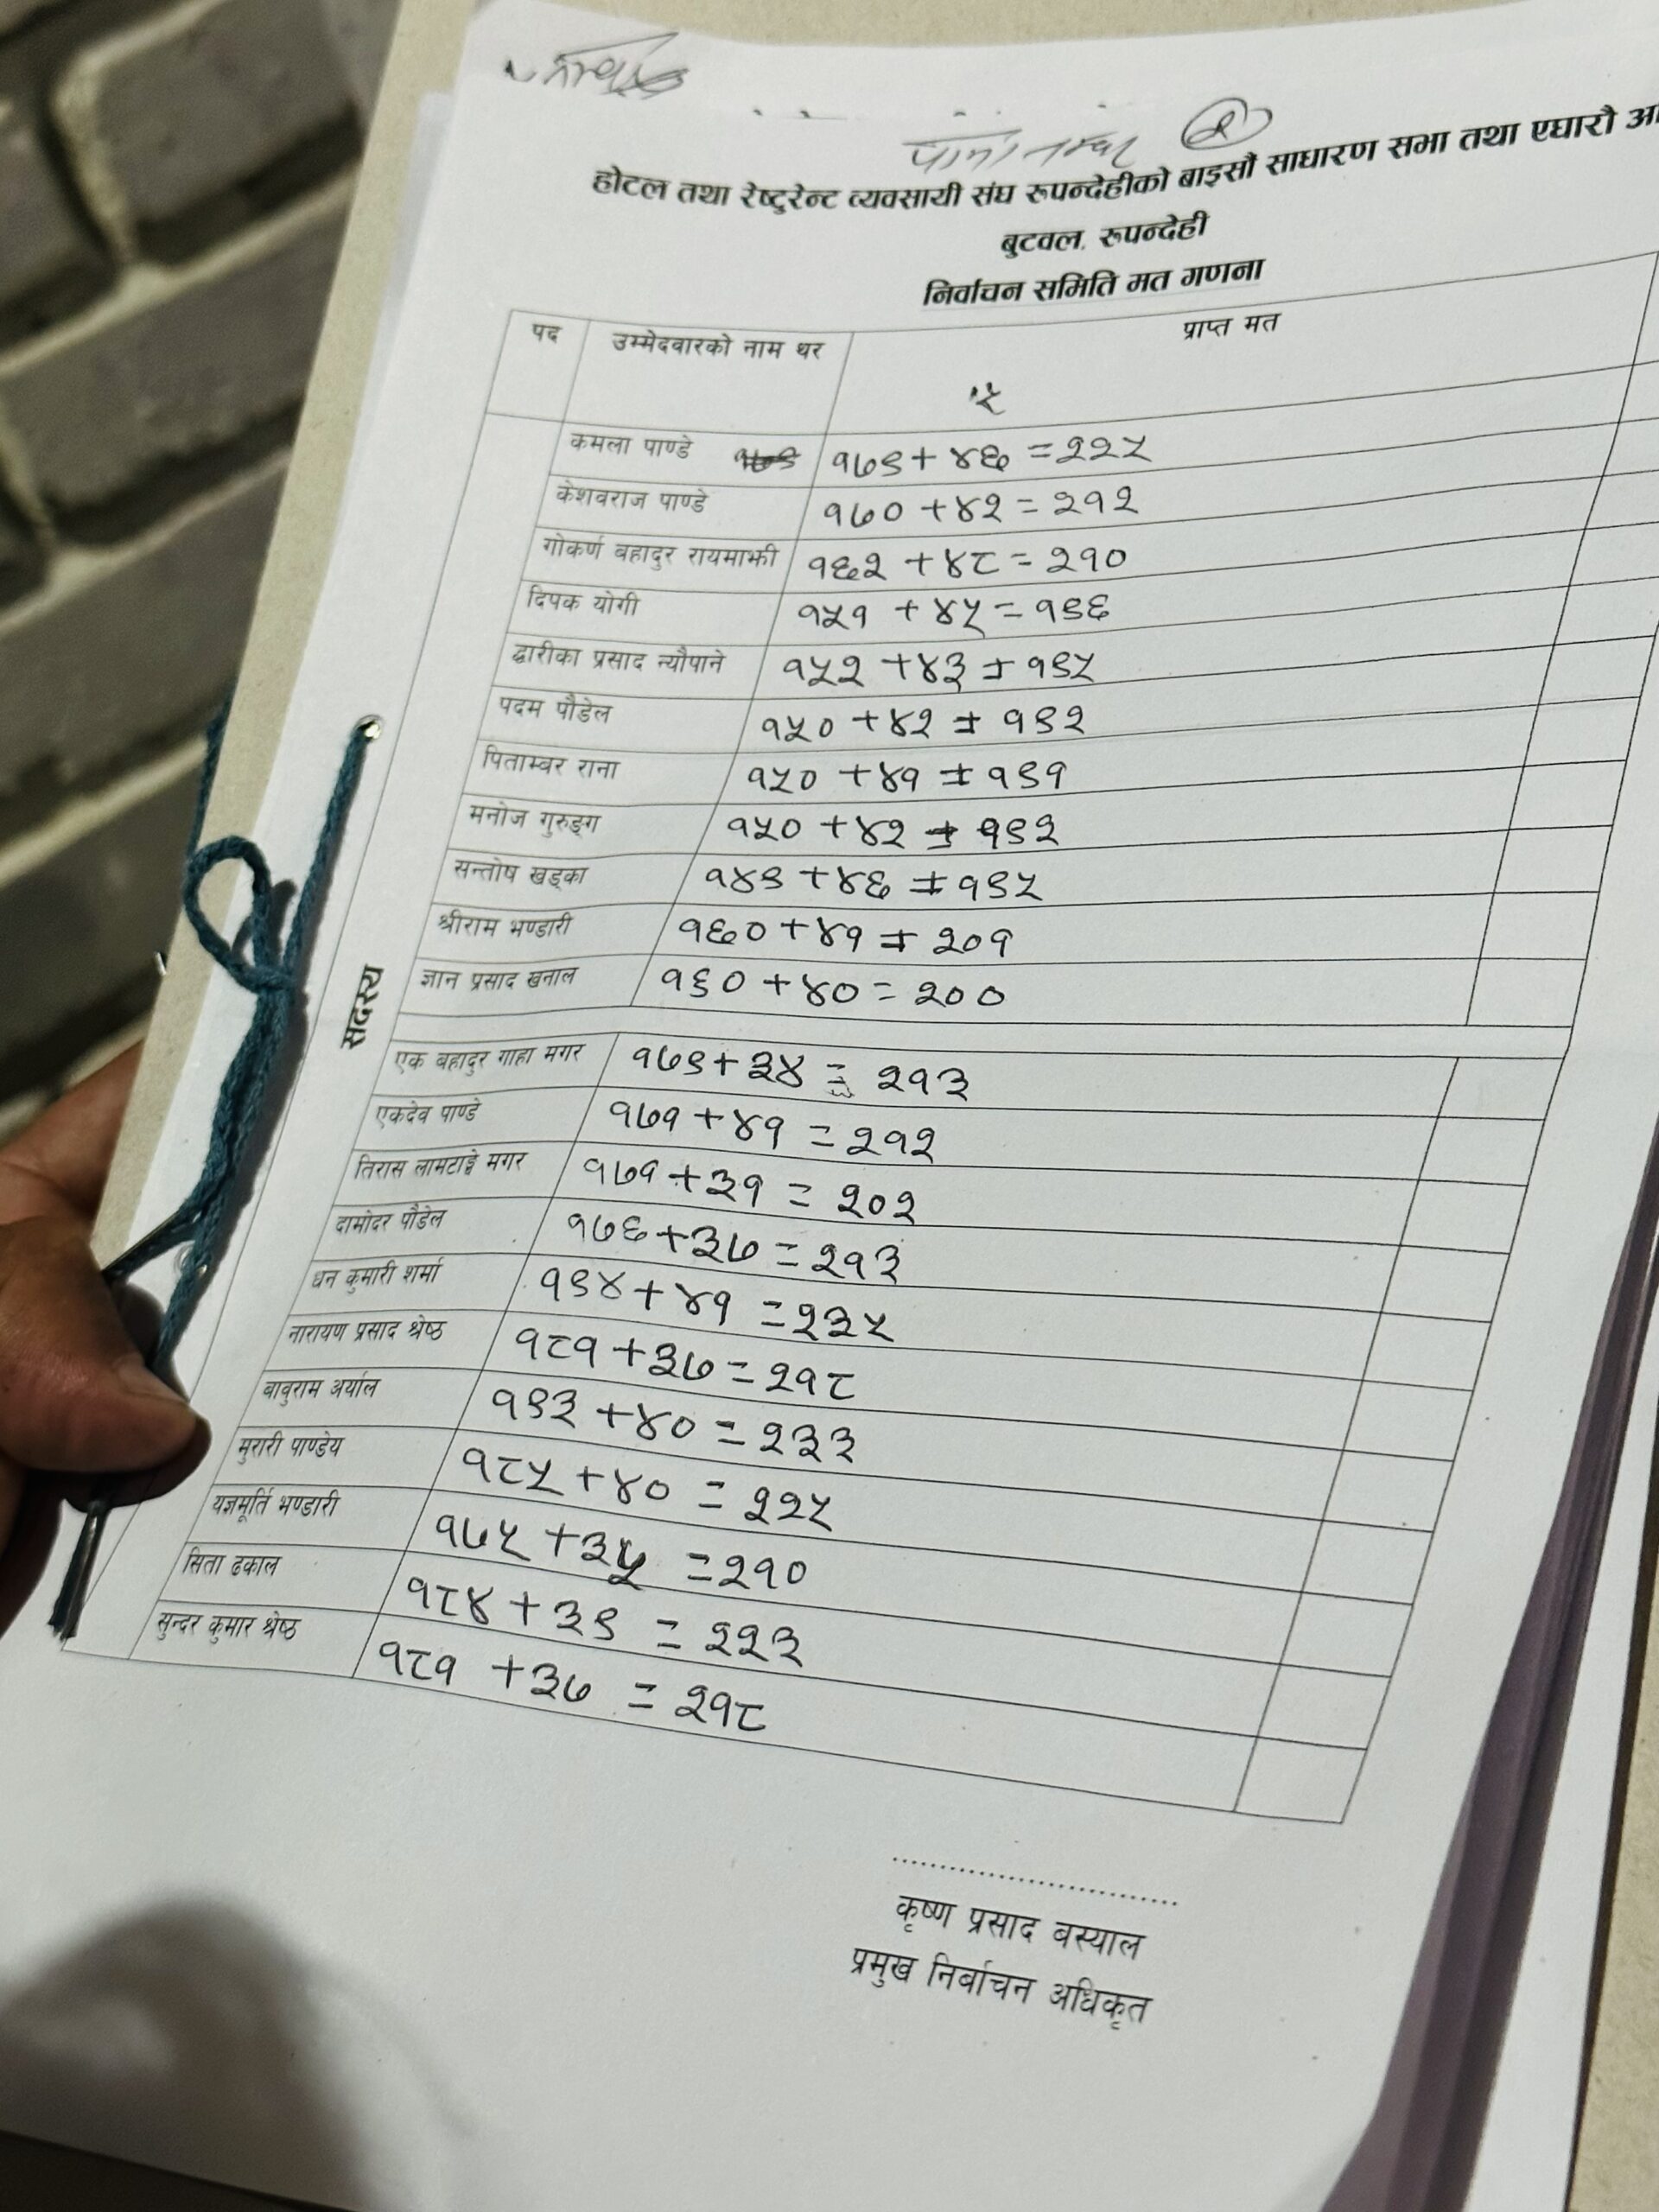 पाना नम्बर २
होटल तथा रेष्टुरेन्ट व्यवसायी संघ रूपन्देहीको बाइसौं साधारण सभा तथा एघारौ
बुटवल, रूपन्देही
निर्वाचन समिति मत गणना
पद उम्मेदवारको नाम थर प्राप्त मत
सदस्य
कमला पाण्डे १७९+४६ =२२५
केशवराज पाण्डे १७०+४२= २१२
गोकर्ण बहादुर रायमाझी १६२ +४८= २१०
दिपक योगी १५१ +४५= १९६
द्वारीका प्रसाद न्यौपाने १५२ +४३ = १९५
पदम पौडेल १५०+४२ = १९२
पिताम्बर राना १५० +४१ = १९१
मनोज गुरुङ्ग १५० +४२ = १९२
सन्तोष खड्का १४९ +४६ = १९५
श्रीराम भण्डारी १६०+४१ = २०१
ज्ञान प्रसाद खनाल १६० +४०= २००
एक बहादुर गाहा मगर १७९+३४ = २१३
एकदेव पाण्डे १७१+४१ = २१२
तिरास लामटाङ्गे मगर १७१+३१ = २०२
दामोदर पौडेल १७६+३७ =२१३
धन कुमारी शर्मा १९४+४१ =२३५
नारायण प्रसाद श्रेष्ठ १८१+३७= २१८
बाबुराम अर्याल १९३ +४० = २३३
मुरारी पाण्डेय १८५ +४० = २२५
यज्ञमूर्ति भण्डारी १७५ +३५ =२१०
सिता ढकाल १८४ +३९ = २२३
सुन्दर कुमार श्रेष्ठ १८१ +३७ = २१८
कृष्ण प्रसाद बस्याल
प्रमुख निर्वाचन अधिकृत